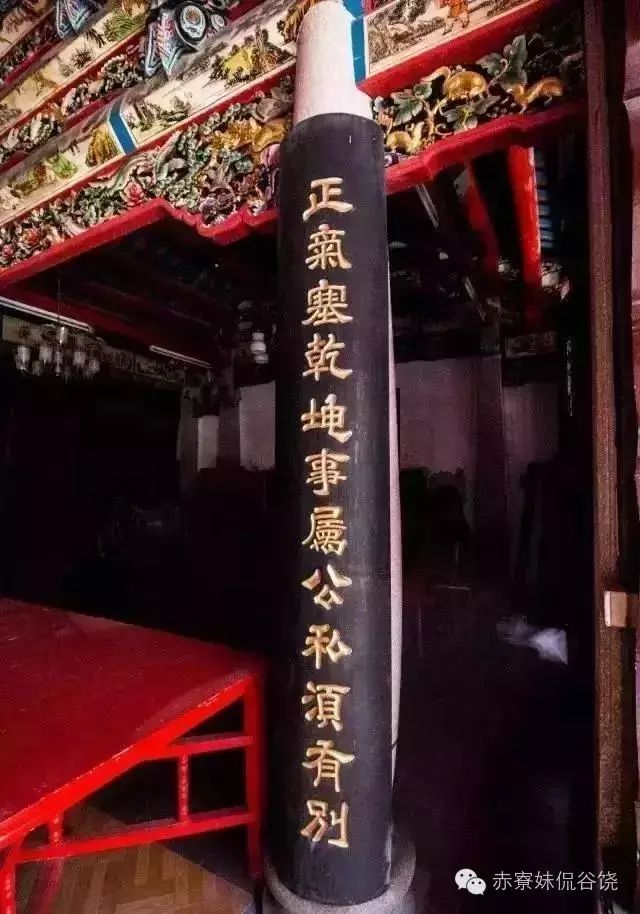 正氣塞乾坤事屬公私須有別
赤寮妹侃谷饶